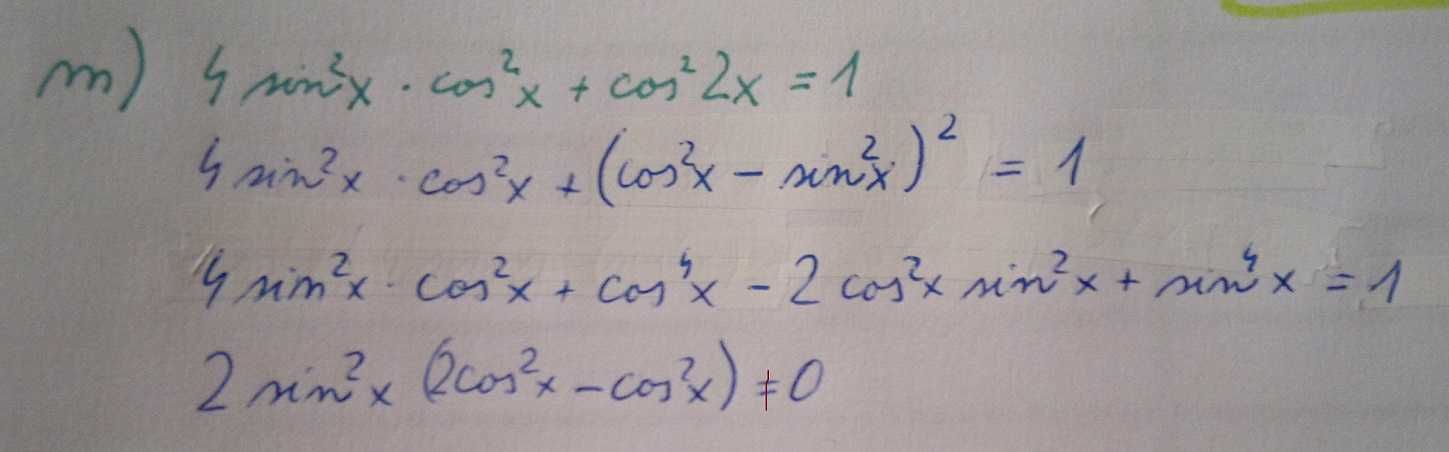 m) 4 sin²x · cos²x + cos²2x = 1
4 sin²x · cos²x + (cos²x - sin²x)² = 1
4 sin²x · cos²x + cos⁴x - 2 cos²x sin²x + sin⁴x = 1
2 sin²x (2cos²x - cos²x) = 0